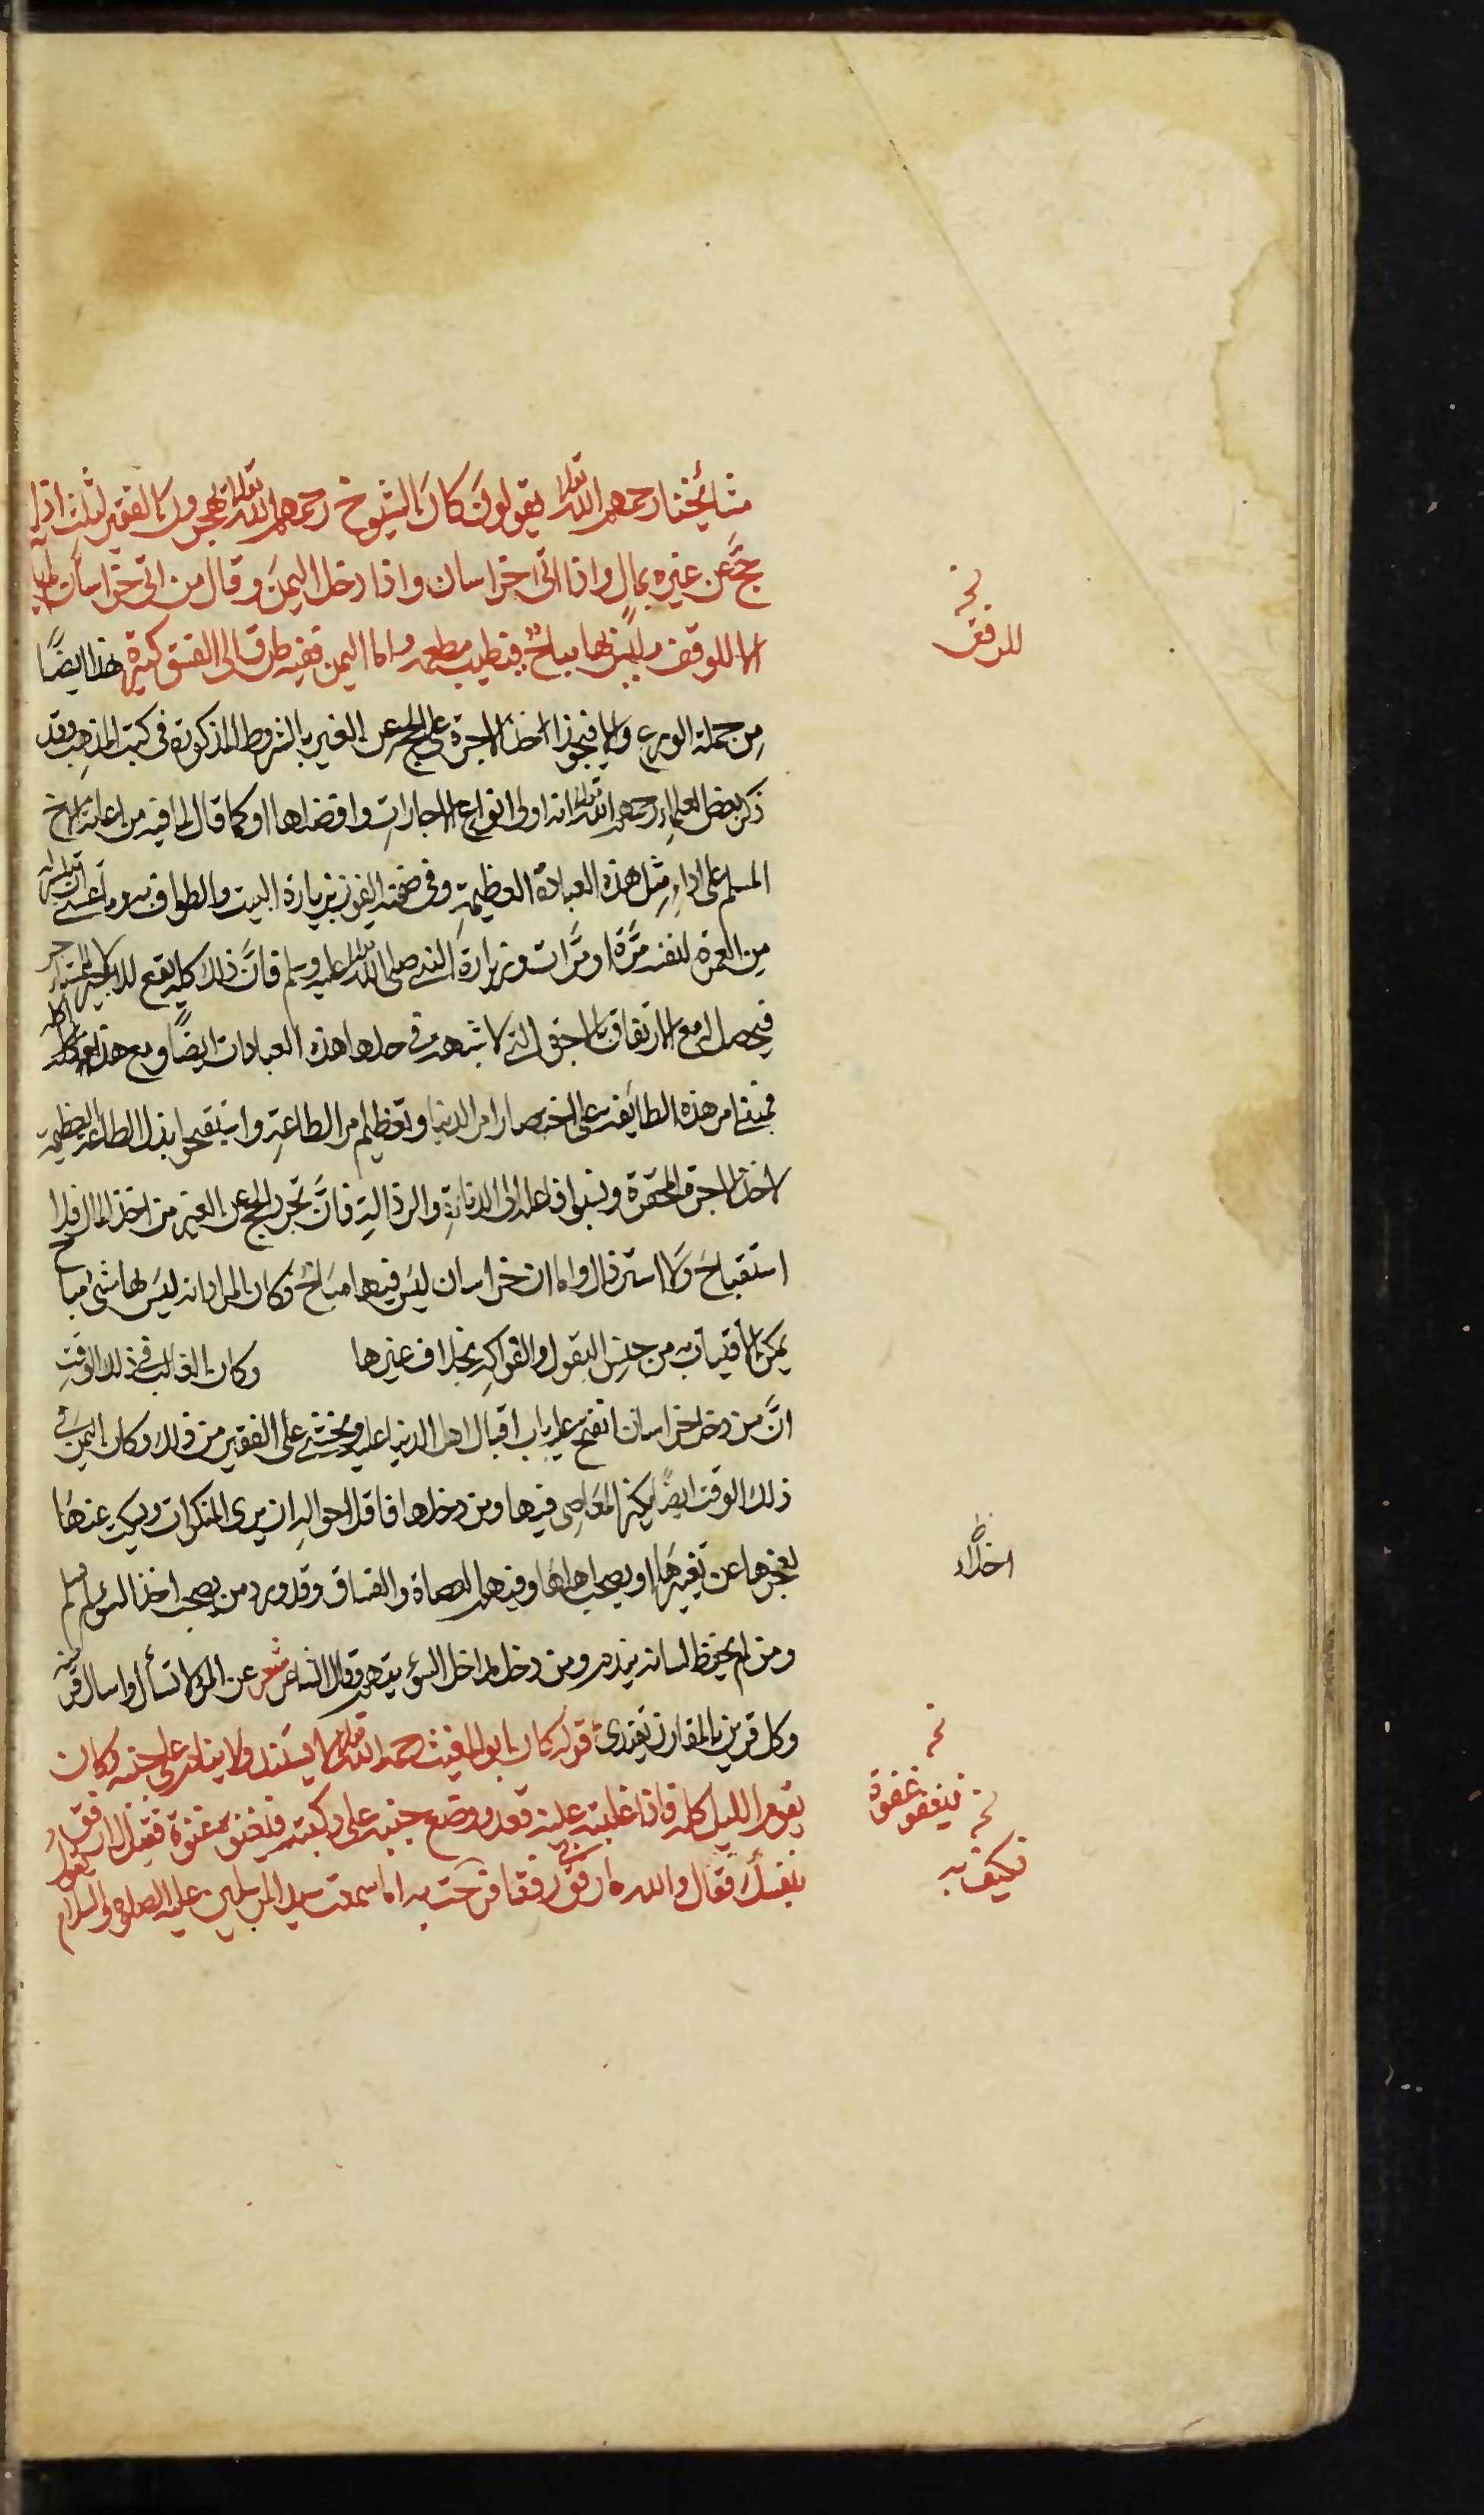 مشايخنا رحمهم الله تعالى يقولون كان الشيوخ رحمهم الله تعالى يهجرون الفقير لثلث اذا
حج عن غيره بمال واذا اتى خراسان واذا دخل اليمن وقال من اتى خراسان
الا للوقف وليس بها مباح فيطيب مطعمه واما اليمن ففيه طرق الى الفسق كثيرة هذا ايضا
من جملة الورع والا فيجوز اخذ الاجرة على الحج عن الغير بالشروط المذكورة فى كتب المذهب وقد
ذكر بعض العلماء رحمهم الله تعالى انه اولى انواع الاجارات وافضلها او كما قال لما فيه من اعانة الاخ
المسلم على اداء مثل هذه العبادة العظيمة وفى ضمنه الفوز بزيارة البيت والطواف به وما
من العمرة لنفسه مرة او مرات وزيارة النبي صلى الله تعالى عليه وسلم فان ذلك كله يقع للاجير
فيحصل له مع الارتفاق بالاجرة التي لا شبهة في حلها هذه العبادات ايضا ومع هذا كله
فمبنى امر هذه الطايفة على اختصار امر الدنيا وتعظيم امر الطاعة واستقبحوا بذل الطاعة العظيمة
لاخذ الاجرة المحقرة ونسبوا فاعله الى الدناءة والرذالة فان تجرد الحج عن الغير من اخذ المال فلا
استقباح ولا استرذال واما ان خراسان ليس فيها مباح فكان المراد انه ليس بها شئ مباح
يمكن الاقتيات به من جنس البقول والفواكه بخلاف غيرها وكان الغالب في ذلك الوقت
ان من دخل خراسان انفتح عليه باب اقبال اهل الدنيا عليه ويخشى على الفقير من ذلك وكان اليمن في
ذلك الوقت ايضا يكثر المعاصي فيها ومن دخلها فاقل احواله ان يرى المنكرات ويسكت عنها
لعجزها عن تغييرها او يصحب اهلها وفيهم العصاة والفساق وقد ورد من يصحب اخذا السوء لم يسلم
ومن لم يحفظ لسانه يندم ومن دخل مداخل السوء يتهم وقال الشاعر شعر عن المرء لا تسأل واسال قرينه
وكل قرين بالمقارن يقتدى قوله كان ابو الغيث رحمه الله تعالى لا يستند ولا ينام على جنبه وكان
يقوم الليل كله فاذا غلبته عينه قعد ووضع جبينه على ركبتيه فيغفو غفوة فقيل له ارفق
بنفسك فقال والله ما رفق بي رفقا فرحت به اما سمعت سيد المرسلين عليه الصلوة والسلام يقول
للرفق
اخلاء
فيغفو غفوة
فكيف به